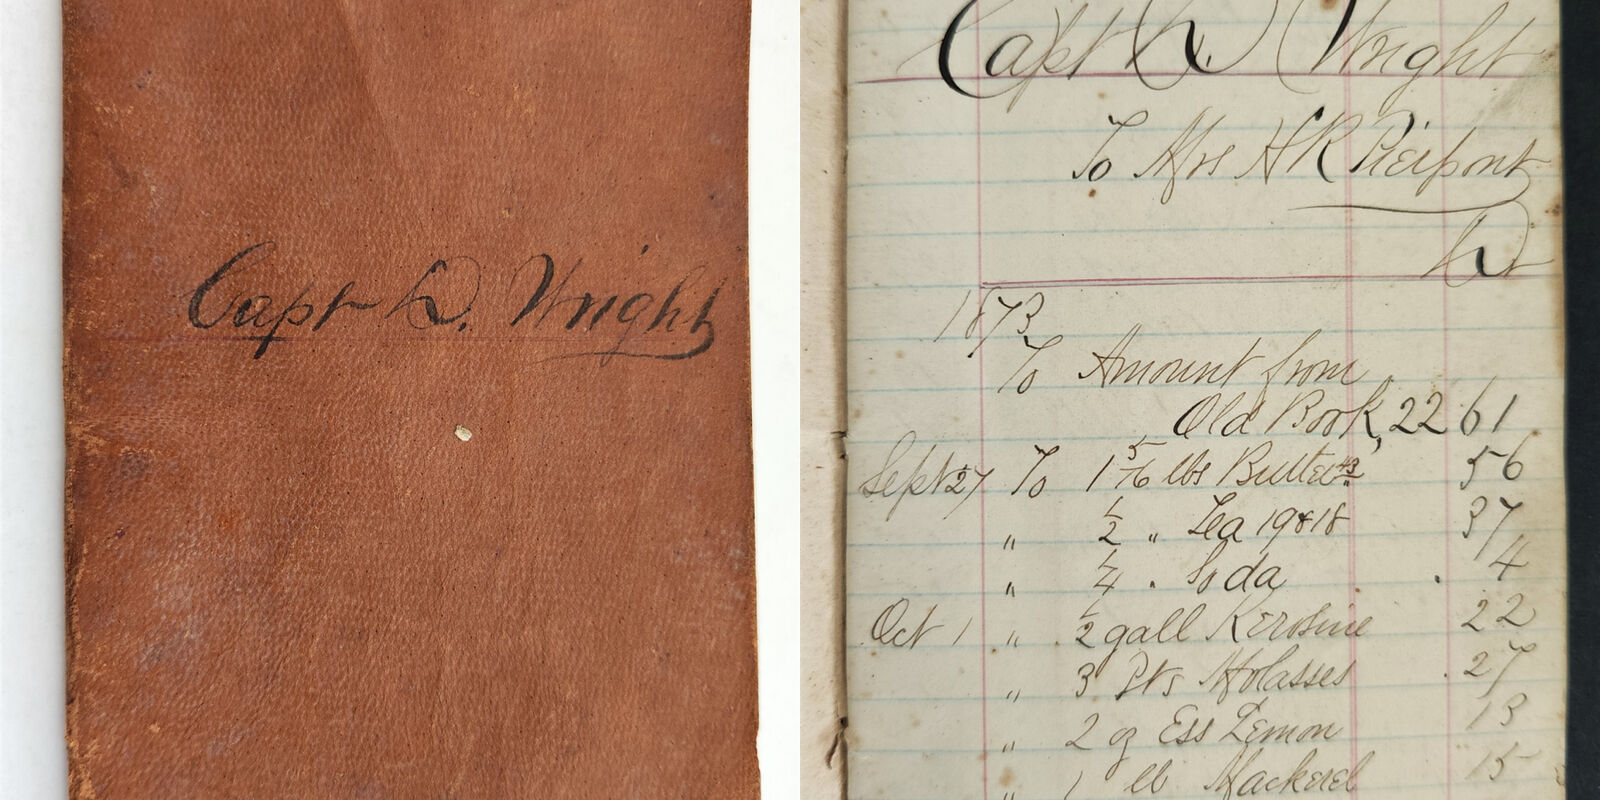 Capt D. Wright
Capt D. Wright
To Mrs H R Pierpont
Dr
1873
To Amount from
Old Book, 22 61
Sept 27 To 1 5/16 lbs Butter 43 56
" 1/2 " Tea 19 & 18 37
" 1/4 " Soda 4
Oct 1 " 1/2 gall Kerosine 22
" 3 Pts Molasses 27
" 2 oz Ess Lemon 13
" 1 lb Mackerel 15